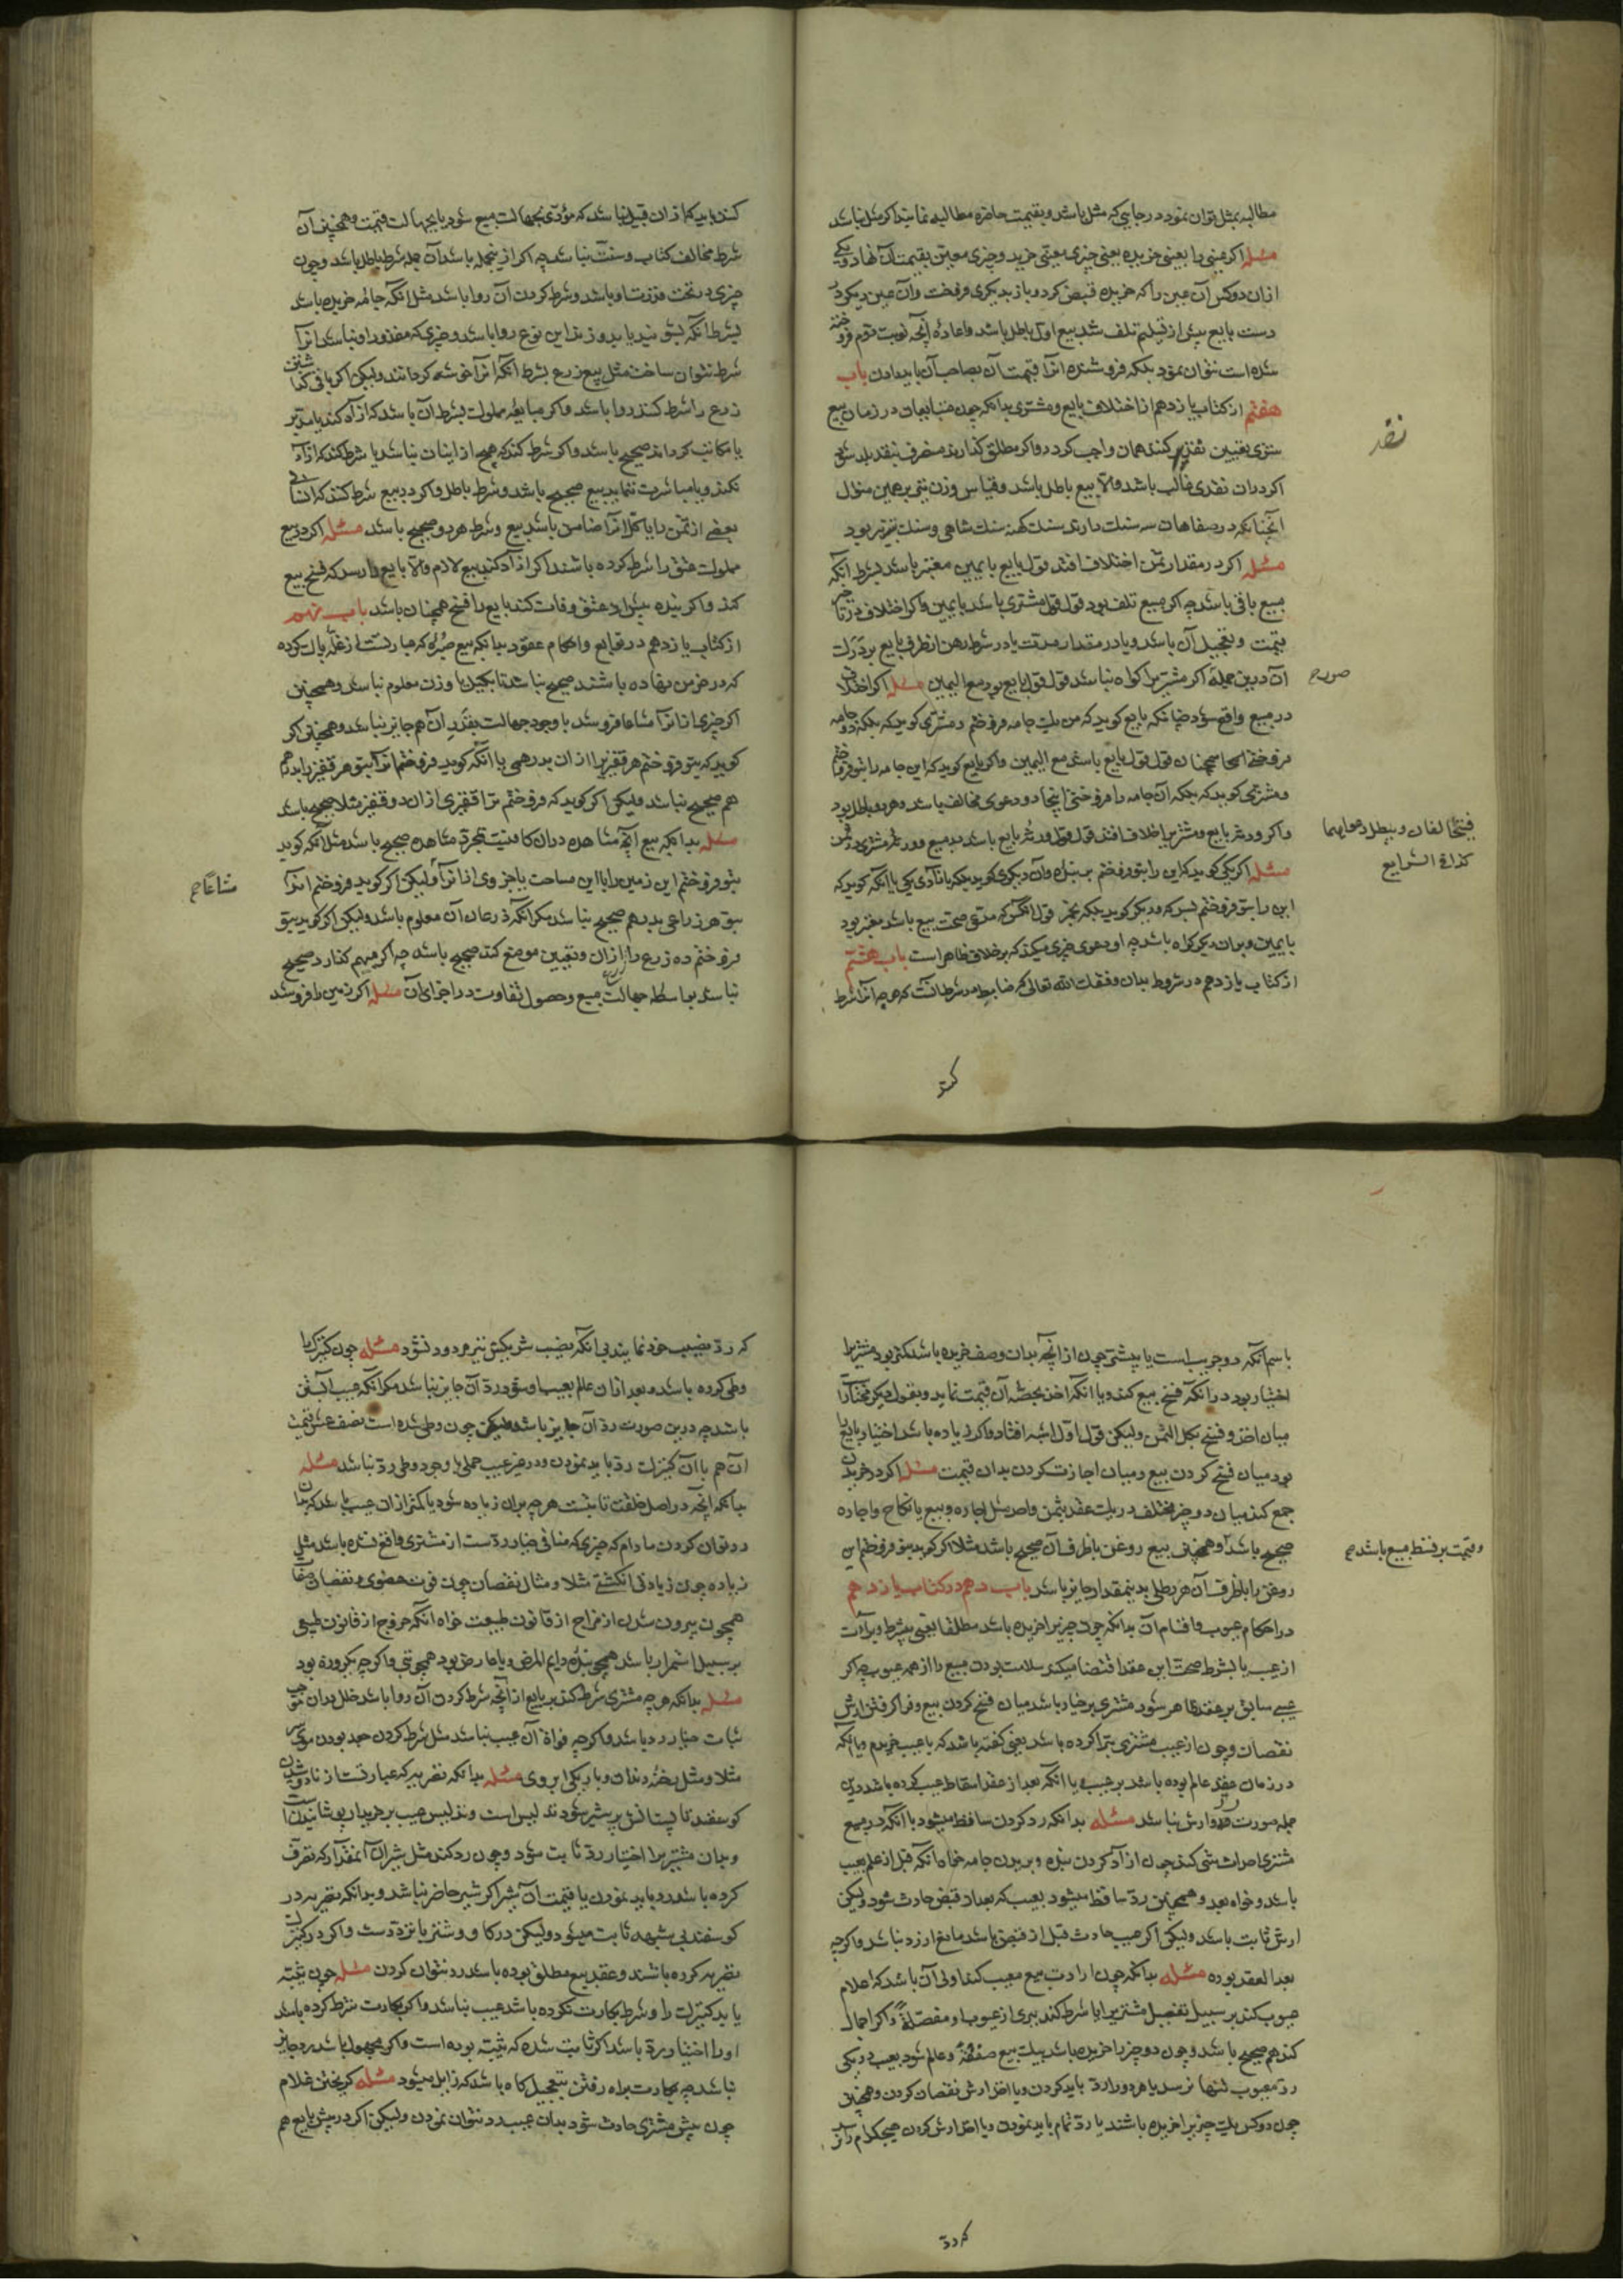 مطالبه بمثل توان نمود در جایی که مثل باشد و بقیمت حاضره مطالبه نماید اگر مثل نباشد
مسئله اگر عینی را بعینی خریده یعنی چیزی معیّن خرید و چیزی معین بقیمت آن نهاد و یکی
ازان دو کس آن عین را که خریده قبض کرد و باز بدیگری فروخت وان عین دیگر در
دست بایع پیش از تسلیم تلف شد بیع اول باطل باشد و اعادهٔ آنچه نوبت دوم فروخته
شده است نتوان نمود بلکه فروشنده انرا قیمت آن بصاحب آن باید دادن باب
هفتم از کتاب یازدهم در اختلاف بایع و مشتری بدانکه چون متبایعان در زمان بیع
تعیین نقدی کنند همان واجب کردد و اکر مطلق گذارند منصرف بنقد بلد شود
اکر دران نقدی غالب باشد والّا بیع باطل باشد و قیاس وزن نیز بر همین منوال
آنچنانکه در صفاهان سه سنک دارند سنک کهنه سنک شاهی و سنک تبریز بود
مسئله اکر در مقدار ثمن اختلاف افتد قول بایع با یمین معتبر باشد بشرط انکه
مبیع باقی باشد چه اکر مبیع تلف بود قول قول مشتری باشد با یمین واکر اختلاف در تاخیر
قیمت و تعجیل آن باشد و یا در مقدار مدت یا در شرط رهن از طرف بایع بر درک
آن درین جمله اکر مشتری را کواه نباشد قول قول بایع بود مع الیمین مسئله اکر اختلاف
در مبیع واقع شود چنانکه بایع کوید که من یک جامه فروختم و مشتری کوید که بلکه دو جامه
فروختی اینجا همچنان قول قول بایع باشد مع الیمین واکر بایع کوید که این جامه را بتو فروختم
و مشتری کوید که بلکه آن جامه را فروختی اینجا دو دعوی مخالف باشد و هر دو باطل بود
واکر ورثهٔ بایع و مشتری را اختلاف افتد قول قول ورثهٔ بایع باشد در مبیع و ورثهٔ مشتری در ثمن
مسئله اکر یکی کوید که این را بتو فروختم به بنده وان دیکری کوید بلکه بازادی یا انکه کوید که
این را بتو فروختم بسرکه و دیکر کوید بلکه بخمر قول انکس که مدعی صحت بیع باشد معتبر بود
با یمین و بران دیکر کواه باشد چه او دعوی چیزی میکند که بر خلاف ظاهر است باب هشتم
از کتاب یازدهم در شروط بدان وفقک الله تعالی که ضابطه در شرط انست که هر چه انرا شرط
نقد
صورت ح
فیتحالفان و یبطل دعواهما
کذا فی الشرایع
کند
کند باید که ازان قبیل نباشد که مؤدّی بجهالت مبیع شود یا بجهالت قیمت و همچنین آن
شرط مخالف کتاب و سنت نباشد چه اکر ازینجمله باشد آن جمله شرط باطل باشد و چون
چیزی در تحت قدرت او باشد و شرط کردن آن روا باشد مثل انکه جامه خریده باشد
بشرط انکه بشوید یا بدوزد این نوع روا باشد و چیزی که مقدور او نباشد انرا
شرط نتوان ساخت مثل بیع زرع بشرط انکه انرا خوشه کرداند ولیکن اکر باقی کذاشتن
زرع را شرط کند روا باشد واکر مبایعهٔ مملوک بشرط آن باشد که ازاد کند یا مدبّر
یا مکاتب کرداند صحیح باشد واکر شرط کند که هیچ از اینان نباشد یا شرط کند که ازاد
نکند و یا مباشرت ننماید بیع صحیح باشد و شرط باطل واکر در بیع شرط کند که انسانی
بعضی از ثمن را یا کل انرا ضامن باشد بیع و شرط هر دو صحیح باشد مسئله اکر در بیع
مملوک عتق را شرط کرده باشند اکر ازاد کند بیع لازم والّا بایع را رسد که فسخ بیع
کند واکر بنده پیش از عتق وفات کند بایع را فسخ همچنان باشد باب نهم
از کتاب یازدهم در توابع واحکام عقود بدانکه بیع صُبْرَه که عبارتست از غلّه پاک کرده
که در خرمن نهاده باشند صحیح نباشد تا بکیل یا وزن معلوم نباشد و همچنین
اکر جزوی از انرا مشاعا فروشد با وجود جهالت بقدر آن هم جایز نباشد و همچنین اکر
کوید که بتو فروختم هر قفیزی را ازان بدرهمی یا انکه کوید فروختم انرا بتو هر قفیز را بدرهم
هم صحیح نباشد ولیکن اکر کوید که فروختم ترا قفیزی ازان دو قفیز مثلا صحیح باشد
مسئله بدانکه بیع آنچه مشاهده دران کافیست بمجرد مشاهده صحیح باشد مثل انکه کوید
بتو فروختم این زمین را با این مساحت یا جزوی از انرا ولیکن اکر کوید فروختم انرا
بتو هر زراعی بدرهم صحیح نباشد مکر انکه ذرعان آن معلوم باشد ولیکن اکر کوید بتو
فروختم ده زرع را ازان و تعیین موضع کند صحیح باشد چه اکر مبهم کذارد صحیح
نباشد بواسطه جهالت مبیع و حصول تفاوت در اجزای آن مسئله اکر زمین را فروشد
مشاعًا ح
باسم آنکه دو جریب است یا بیشتر چون از انچه بدان وصف خریده باشد کمتر بود مشتری را
اختیار بود در انکه فسخ بیع کند و یا انکه اخذ بحصّهٔ آن قیمت نماید و بقول دیکر مختار است
میان اخذ و فسخ بکل الثمن ولیکن قول اول اشبه افتاد واکر زیاده باشد اختیار بایع را
بود میان فسخ کردن بیع و میان اجازت کردن بدان قیمت مسئله اکر در خریدن
جمع کند میان دو چیز مختلف در یک عقد بثمن واحد مثل اجاره و بیع یا نکاح و اجاره
صحیح باشد و همچنین بیع روغن با ظرف آن صحیح باشد مثلا اکر کوید بتو فروختم این
روغن را با ظرف آن هر رطلی بدینمقدار جایز باشد باب دهم در کتاب یازدهم
در احکام عیوب و اقسام آن بدانکه چون چیزی را خریده باشد مطلقا یعنی بی شرط و براءت
از عیب یا بشرط صحت این عقد اقتضا میکند سلامت بودن مبیع را از همه عیوب چه اکر
عیبی سابق بر عقد ظاهر شود مشتری بر خیار باشد میان فسخ کردن بیع و فرا کرفتن ارش
نقصان و چون از عیب مشتری تبرّا کرده باشد یعنی کفته باشد که با عیب خریدم و یا انکه
در زمان عقد عالم بوده باشد بر عیب یا انکه بعد از عقد اسقاط عیب کرده باشد درین
جمله صورت رد و ارش نباشد مسئله بدانکه رد کردن ساقط میشود با انکه در مبیع
مشتری احداث شی کند چون ازاد کردن بنده و بریدن جامه خواه انکه قبل از علم بعیب
باشد و خواه بعد و همچنین ردّ ساقط میشود بعیب که بعد از قبض حادث شود ولیکن
ارش ثابت باشد ولیکن اکر عیب حادث قبل از قبض باشد مانع از رد نباشد واکر چه
بعد العقد بوده مسئله بدانکه چون ارادت بیع معیب کند اولی آن باشد که اعلام
عیوب کند بر سبیل تفصیل مشتری را یا شرط کند بیزی از عیوب او مفصّلةً واکر اجمال
کند هم صحیح باشد و چون دو چیز را خریده باشد بیک بیع صفقةً و عالم شود بعیب در یکی
ردّ معیوب تنها نرسد یا هر دو را ردّ باید کردن و یا اخذ ارش نقصان کردن و همچنین
چون دو کس یک چیز را خریده باشند یا ردّ تمام باید نمودن و یا اخذ ارش کردن هیچکدام را نرسد
و قیمت بر قسط مبیع باشد ح
که ردّ
که ردّ نصیب خود نمایند بی انکه نصیب شریکش نیز مردود نشود مسئله چون کنیزک را
وطی کرده باشد و بعد ازان عالم بعیب او شود ردّ آن جایز نباشد مکر انکه عیب آبستنی
باشد چه درین صورت ردّ آن جایز باشد ولیکن چون وطی شده است نصف عشر قیمت
آن هم با آن کنیزک ردّ باید نمودن و در غیر عیب حملی با وجود وطی ردّ نباشد مسئله
بدانکه انچه در اصل خلقت ثابتست هر چه بران زیاده شود یا کمتر ازان عیب باشد که بدان
رد توان کردن مادام که چیزی که منافی خیار ردّ است از مشتری واقع نشده باشد مثل
زیاده چون زیادتی انکشتی مثلا و مثال نقصان چون فوت عضوی و نقصان صفات
همچون بیرون شدن از مزاج از قانون طبیعت خواه انکه خروج از قانون طبیعی
بر سبیل استمرار باشد همچو بندهٔ دایم المرض و یا عارض بود همچو تبی واکر چه یکروزه بود
مسئله بدانکه هر چه مشتری شرط کند بر بایع از انچه شرط کردن آن روا باشد خلل بدان موجب
ثبات خیار رد باشد واکر چه فوات آن عیب نباشد مثل شرط کردن جعد بودن موی سر
مثلا و مثل پختهٔ دندان و باریکی ابروی مسئله بدانکه تصریه که عبارتست از نادوشیدن
کوسفند تا پستانش پر شیر شود تدلیس است و تدلیس عیب بر خریدار پوشانیدنست
و بدان مشتری را اختیار ردّ ثابت شود و چون رد کند مثل شیر آن آنمقدار که تصرف
کرده باشد رد باید نمودن یا قیمت آن شیر اکر شیر حاضر نباشد و بدانکه تصریه در
کوسفند بی شبهه ثابت میشود ولیکن در کاو و شتر با تردّدست واکر در کنیزک
تصریه کرده باشند و عقد بیع مطلق بوده باشد رد نتوان کردن مسئله چون ثیّبه
یابد کنیزک را و شرط بکارت نکرده باشد عیب نباشد واکر بکارت شرط کرده باشد
او را اختیار ردّ باشد اکر ثابت شده که ثیّبه بوده است واکر مجهول باشد رد جایز
نباشد چه بکارت براه رفتن بتعجیل کاه باشد که زایل میشود مسئله کریختن غلام
چون پیش مشتری حادث شود بدان عیب رد نتوان نمودن ولیکن اکر در پیش بایع هم